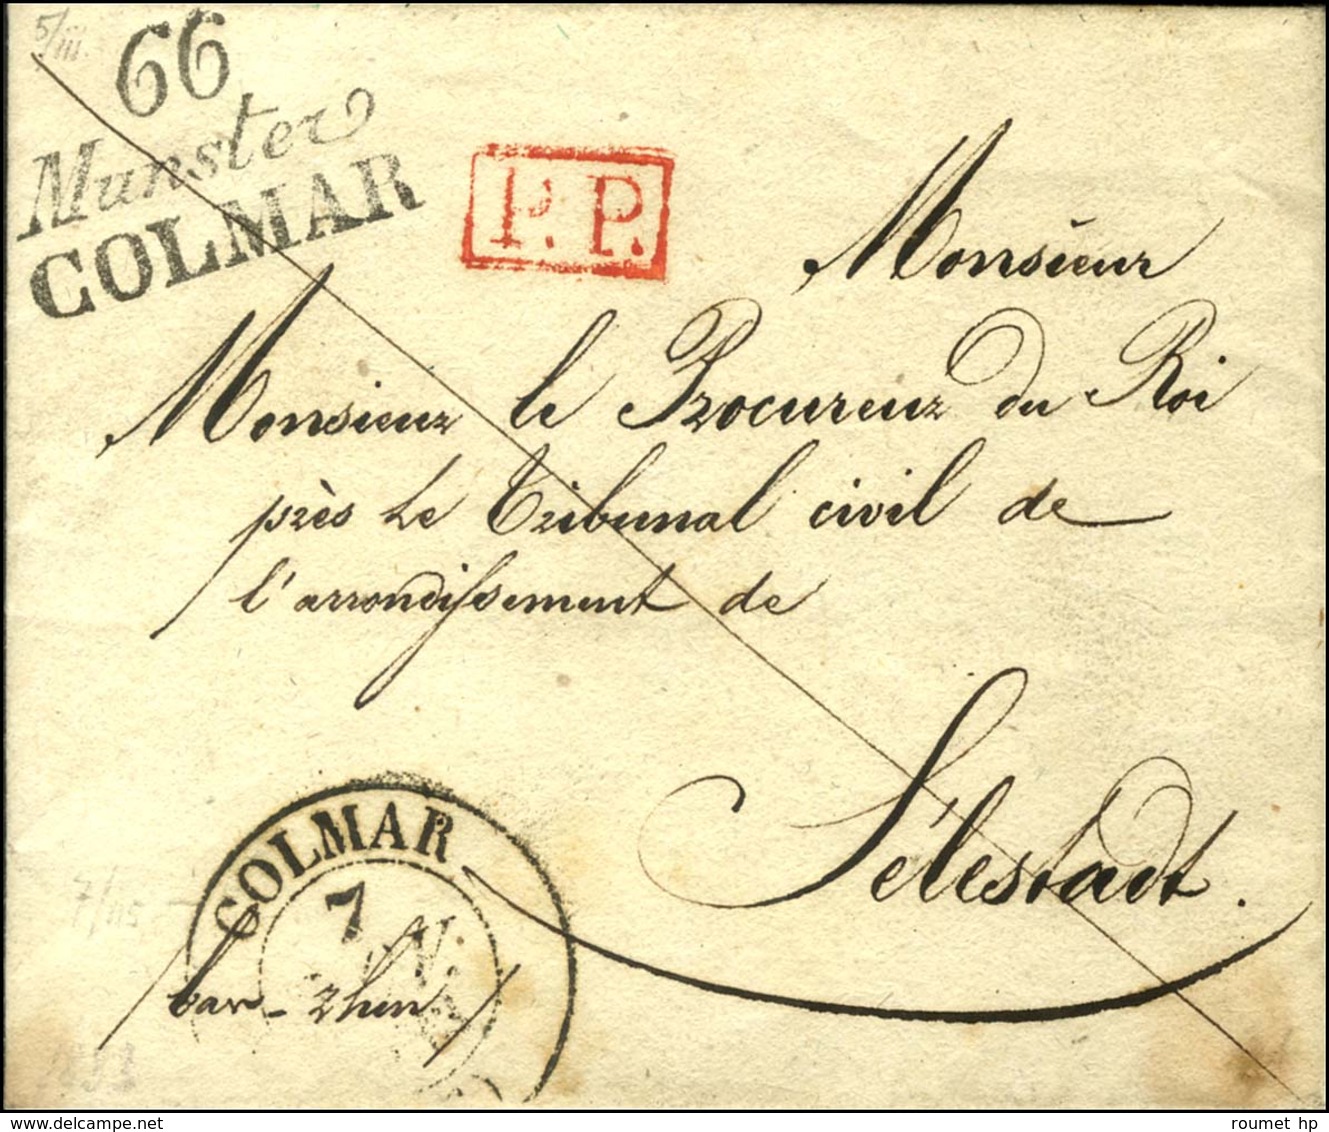 5/iii.
66
Munster
COLMAR
P. P.
Monsieur
Monsieur le Procureur du Roi
près le Tribunal civil de
l'arrondissement de
Sélestadt.
COLMAR
7
bas-rhin
delcampe.net
roumet hp